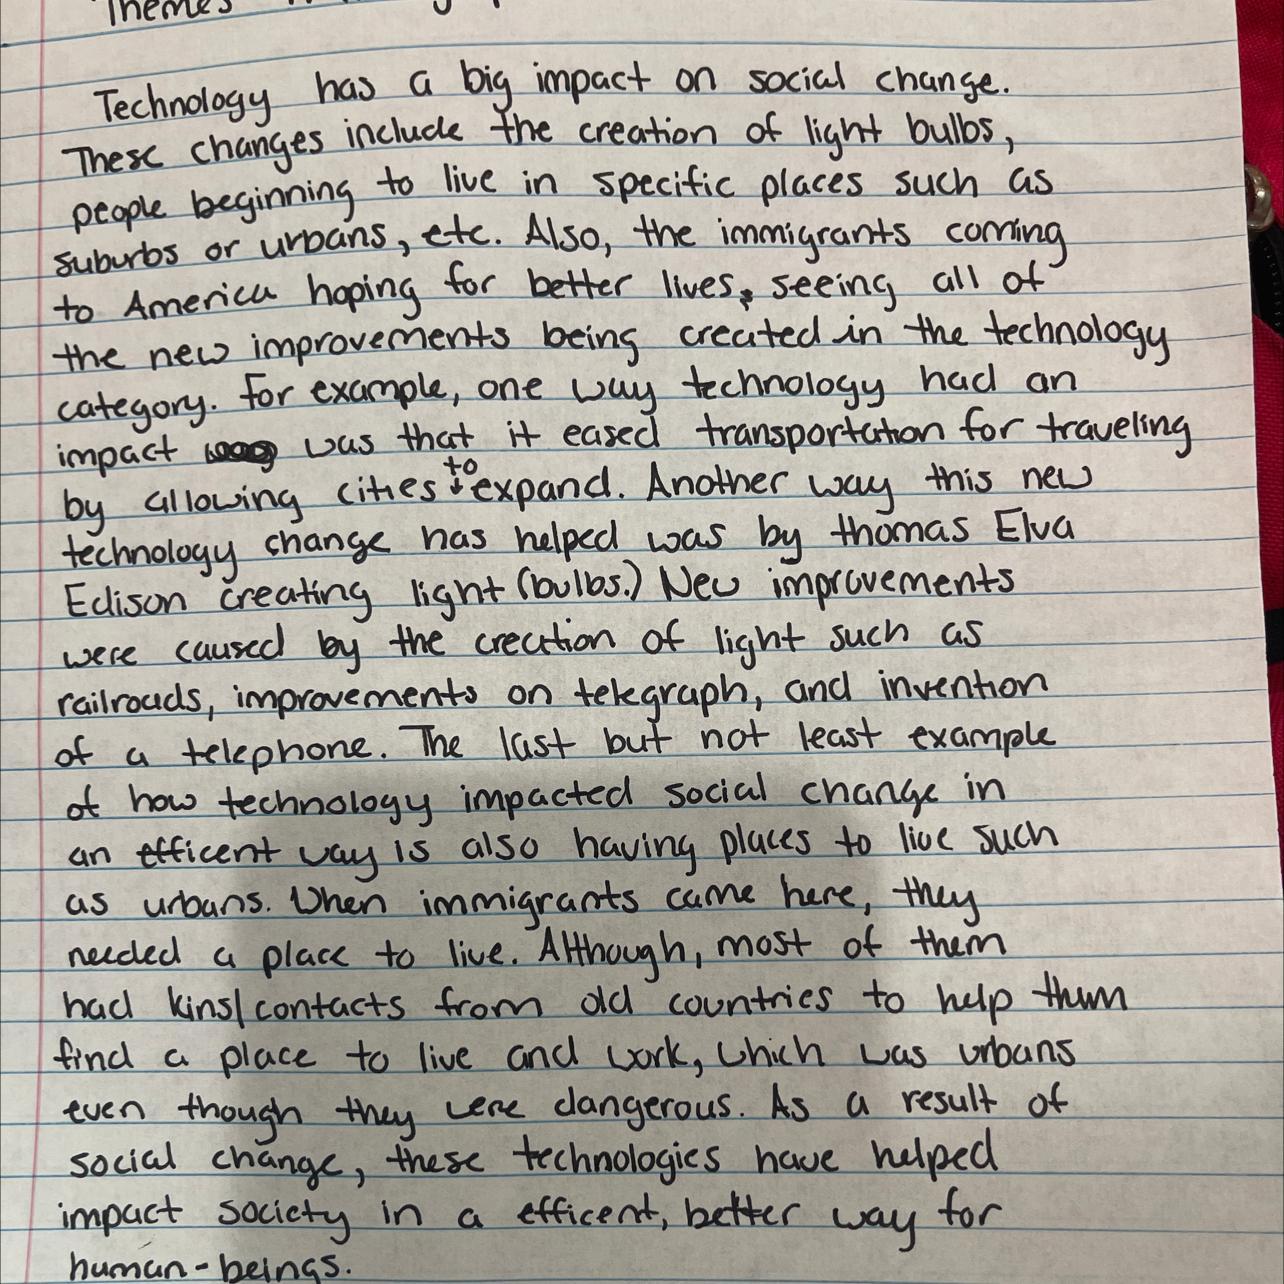 Themes
Technology has a big impact on social change.
These changes include the creation of light bulbs,
people beginning to live in specific places such as
suburbs or urbans, etc. Also, the immigrants coming
to America hoping for better lives, seeing all of
the new improvements being created in the technology
category. For example, one way technology had an
impact was that it eased transportation for traveling
by allowing cities to expand. Another way this new
technology change has helped was by thomas Elva
Edison creating light (bulbs.) New improvements
were caused by the creation of light such as
railroads, improvements on telegraph, and invention
of a telephone. The last but not least example
of how technology impacted social change in
an efficent way is also having places to live such
as urbans. When immigrants came here, they
needed a place to live. Although, most of them
had kins/contacts from old countries to help them
find a place to live and work, which was urbans
even though they were dangerous. As a result of
social change, these technologies have helped
impact society in a efficent, better way for
human-beings.